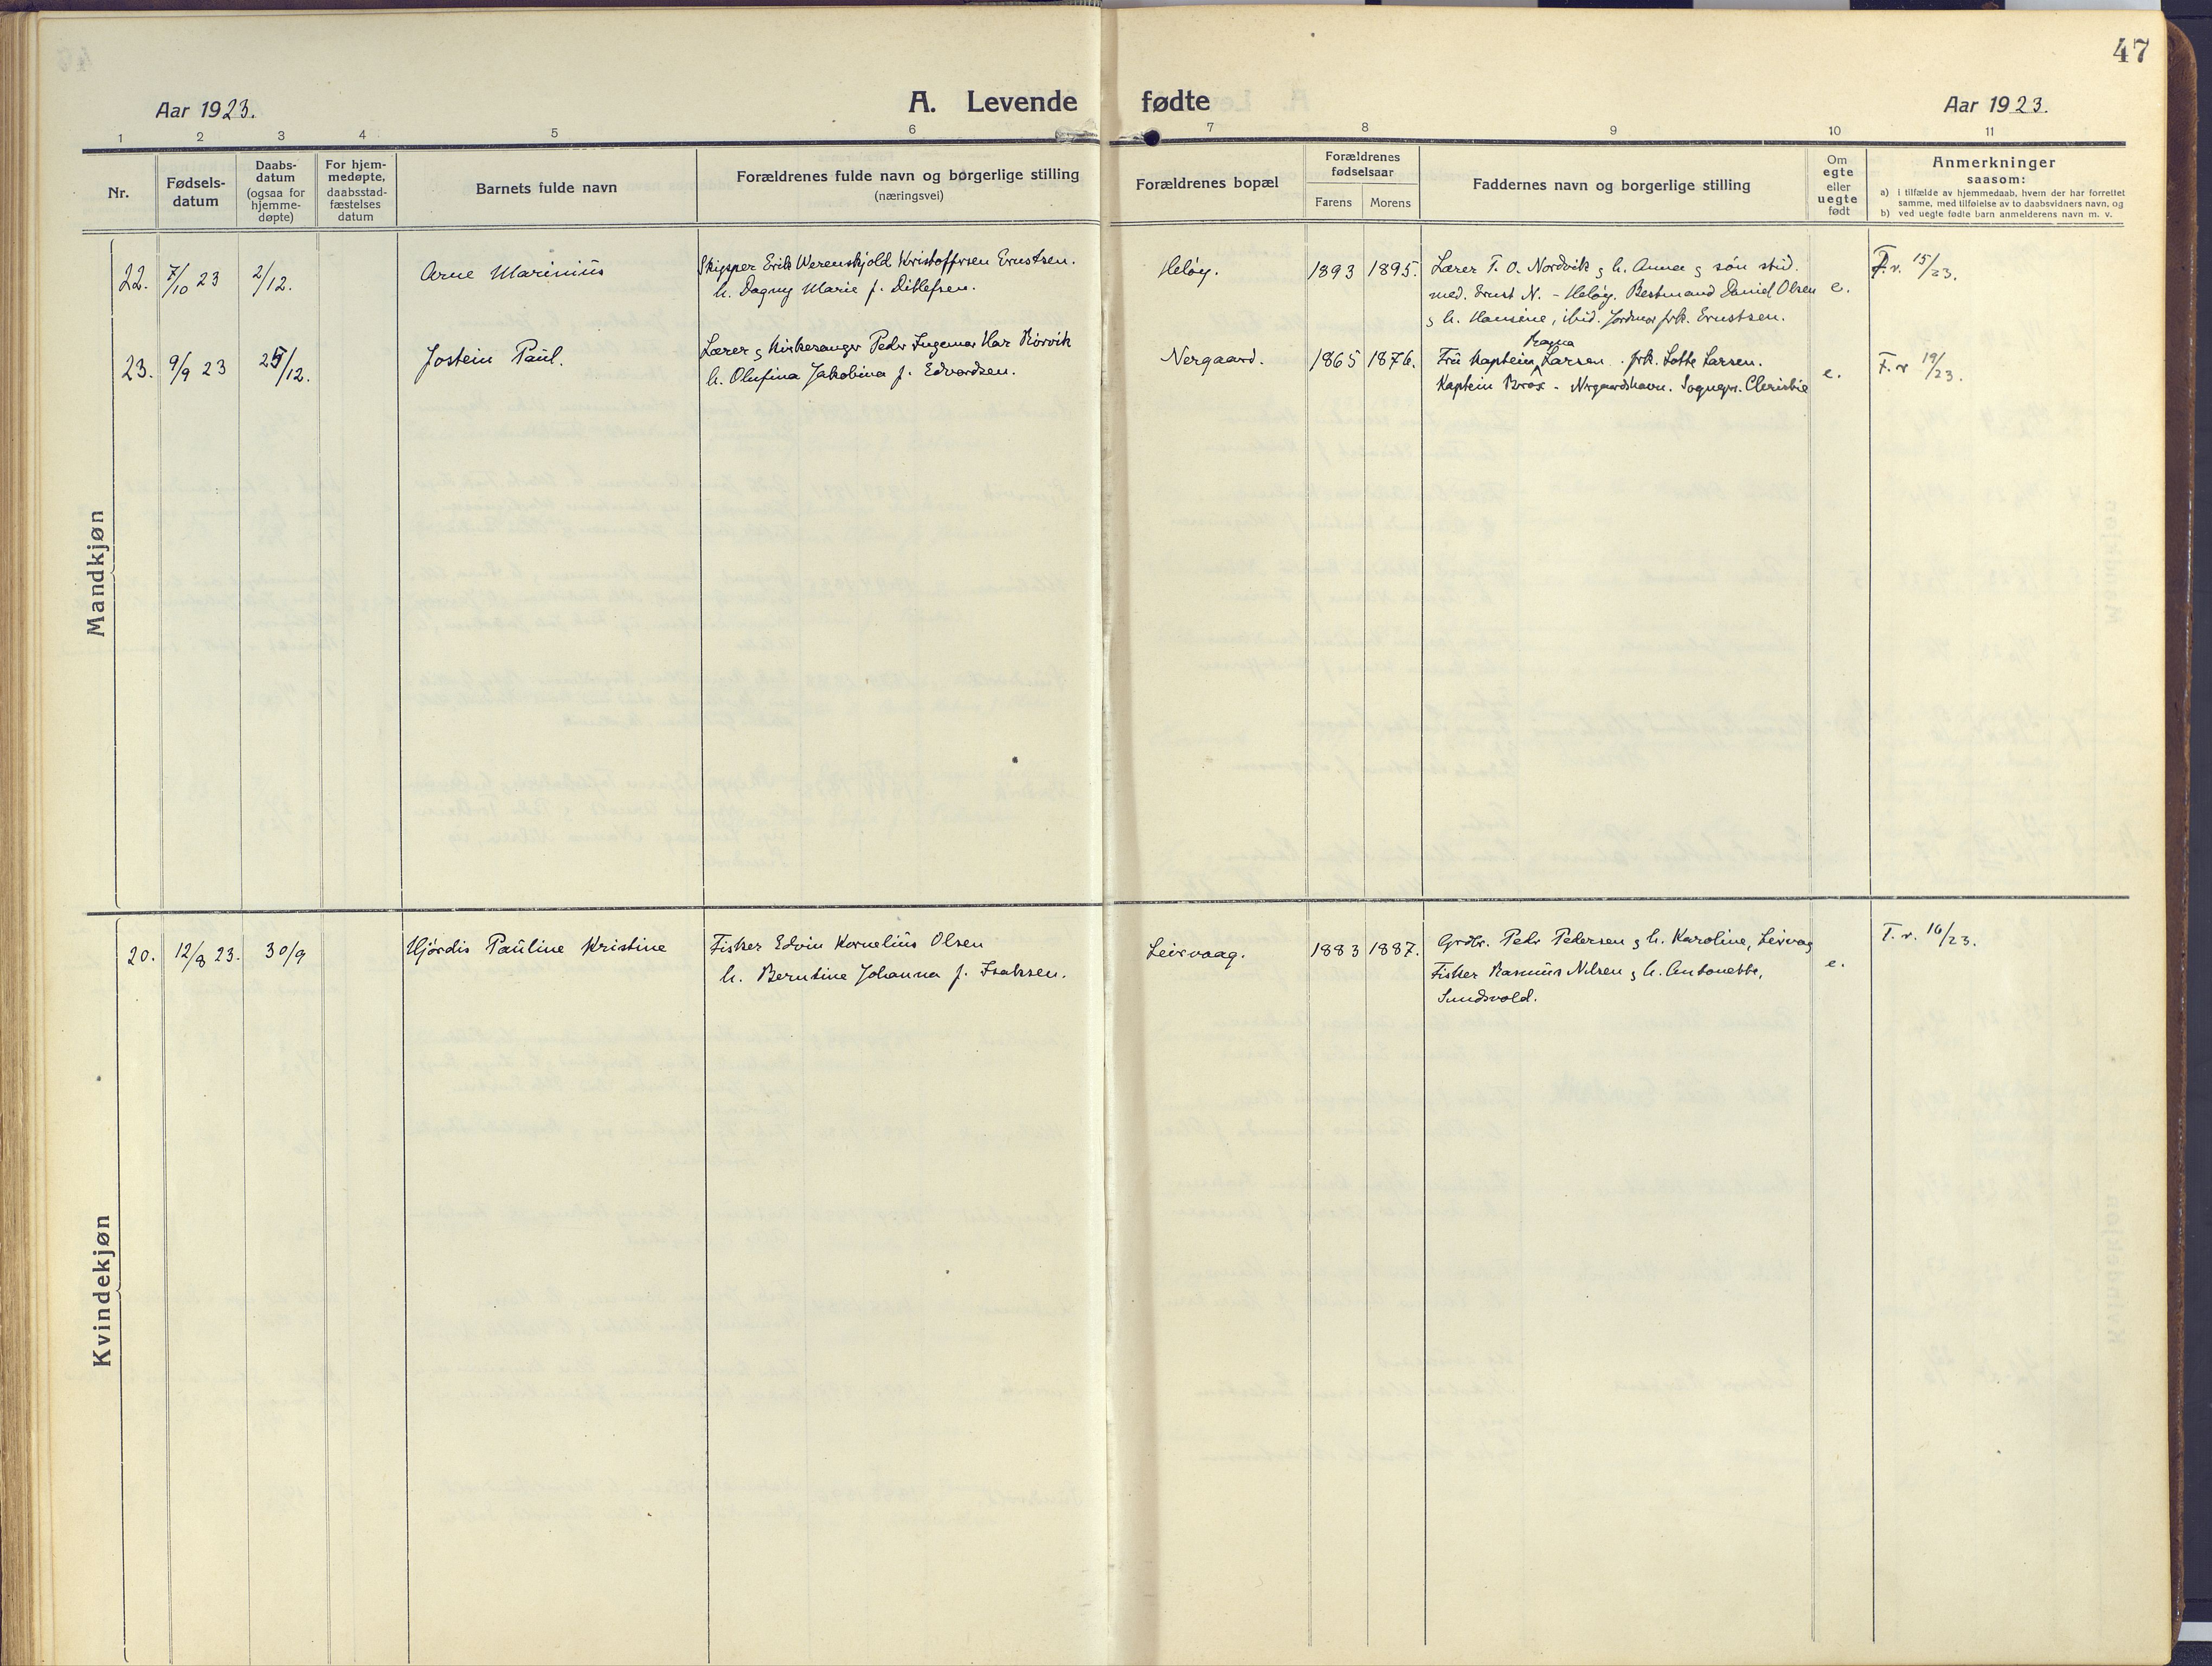 47
Aar 1923.
A. Levende fødte
Aar 1923.
1 2 3 4 5 6 7 8 9 10 11
Nr.
Fødsels-
datum
Daabs-
datum
(ogsaa for
hjemme-
døpte)
For hjem-
medøpte,
daabsstad-
fæstelses
datum
Barnets fulde navn
Forældrenes fulde navn og borgerlige stilling
(næringsvei)
Forældrenes bopæl
Forældrenes
fødselsaar
Farens Morens
Faddernes navn og borgerlige stilling
Om
egte
eller
uegte
født
Anmerkninger
saasom:
a) I tilfælde av hjemmedaab, hvem der har forrettet
samme, med tilføielse av to daabsvidners navn, og
b) ved uegte fødte barn anmelderens navn m. v.
Mandkjøn
22. 7/10 23 2/12. Arne Marinius
Skipper Erik Werenskjold Kristoffersen Ernstsen.
h. Dagny Marie f. Ditlefsen.
Heløy. 1893 1895.
Lærer T. O. Nordvik & h. Anna & søn stud.
med. Ernst N. - Heløy. Bestmand Daniel Olsen
& h. Hansine, ibid. Jordmor frk. Ernstsen.
e.
F.v. 15/23.
23. 9/9 23 25/12. Jostein Paul.
Lærer & Kirkesanger Peder Ingemar Har Rörvik
h. Olufina Jakobina f. Edvardsen.
Nergaard. 1865 1876.
Ragna
Fru Kaptein Larsen. frk. Lotte Larsen.
Kaptein Brox - Nergaardshavn. Sognepr.
e.
F.v 19/23.
Kvindekjøn
20. 12/8 23. 30/9 Hjördis Pauline Kristine
Fisker Edvin Kornelius Olsen
h. Berntine Johanna f. Isaksen.
Leirvaag. 1883 1887.
Grdbr. Peder Pedersen & h. Karoline, Leirvag
Fisker Rasmus Nilsen & h. Antonette,
Sundsvold.
e.
F.v. 16/23.